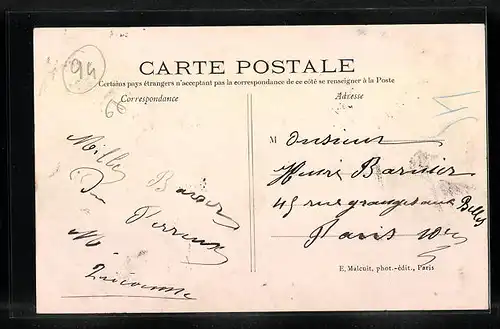 94
CARTE POSTALE
Certains pays étrangers n'acceptant pas la correspondance de ce côté se renseigner à la Poste
Correspondance
Adresse
Mille
Baisers
Du
Perreux
M.
Monsieur
Henri Barnier
45 rue grange aux Belles
Paris
E. Malcuit, phot.-édit., Paris